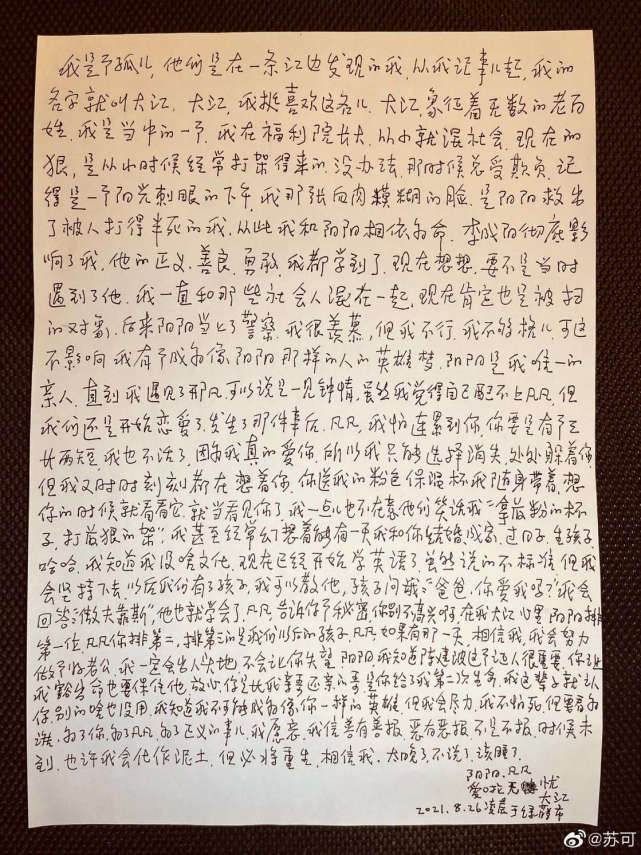 我是个孤儿，他们是在一条江边发现的我，从我记事儿起，我的
名字就叫大江，大江，我挺喜欢这名儿，大江，象征着无数的老百
姓，我是当中的一个，我在福利院长大，从小就混社会，现在的
狠，是从小时候经常打架得来的，没办法，那时候总受欺负，记
得是一个阳光刺眼的下午，我那张血肉模糊的脸，是阳阳救出
了被人打得半死的我，从此我和阳阳相依为命，李成阳彻底影
响了我，他的正义，善良，勇敢，我都学到了，现在想想，要不是当时
遇到了他，我一直和那些社会人混在一起，现在肯定也是被扫
的对象，后来阳阳当上了警察，我很羡慕，但我不行，我不够格儿，可这
不影响我有个成为像阳阳那样的人的英雄梦，阳阳是我唯一的
亲人，直到我遇见了那凡，可以说是一见钟情，虽然我觉得自己配不上凡凡，但
我们还是开始恋爱了，发生了那件事后，凡凡，我怕连累到你，你要是有个三
长两短，我也不活了，因为我真的爱你，所以我只能选择消失，处处躲着你，
但我又时时刻刻都在想着你，你送我的粉色保温杯我随身带着，想
你的时候就看看它，就当看见你了，我一点儿也不在意他们笑话我“拿最粉的杯
子，打最狠的架”，我甚至经常幻想着能有一天我和你结婚，成家，过日子，生孩子，
哈哈，我知道我没啥文化，现在已经开始学英语了，虽然说的不标准，但我
会坚持下去，以后我们有了孩子，我可以教他，孩子问我：“爸爸，你爱我吗？”我会
回答：“做夫靠斯”他也就学会了，凡凡，告诉你个秘密，你别不高兴啊，在我大江心里，阳阳排
第一位，凡凡你排第二，排第三的是我们以后的孩子，凡凡，如果有那一天，相信我，我会努力
做个好老公，我一定会出人头地，不会让你失望，阳阳，我知道陈建波这个证人很重要，你
我豁出命也要保住他，放心，你是比我亲哥还亲的哥，是你给了我第二次生命，我这辈子就认
你，别的啥也没用，我知道我不可能成为像你一样的英雄，但我会尽力，我不怕死，但要看为
谁，为了你，为了凡凡，为了正义的事儿，我愿意，我信善有善报，恶有恶报，不是不报，时候未
到，也许我会化作泥土，但必将重生，相信我，太晚了，不说了，该睡了
阳阳，凡凡
爱吃无忧
大江
2021.8.26凌晨于绿藤市
@苏可